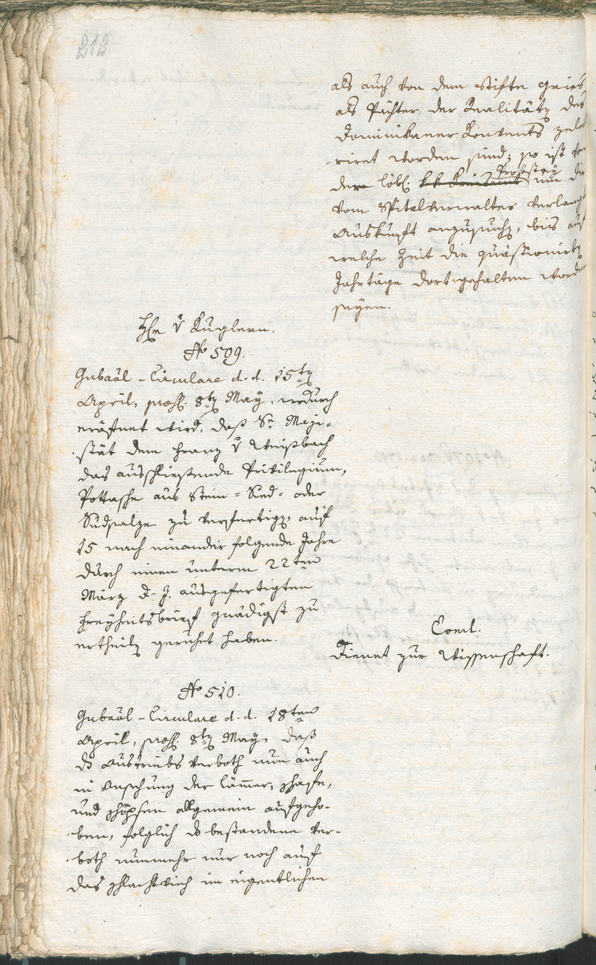 212
als auch von dem Stifte Gries,
als Pächter der Realitäten des
Dominikaner Konvents zele-
rirt worden sind; so ist von
der löbl. Probstey um die
vom Spitalverwalter verlangte
Auskunft anzusuchen, bis auf
welche Zeit die quästionirten
Jahrtäge dort gehalten worden
seyen.
H v Kuglern.
No 509.
Gubaal-Circulare d. d. 15ten
April, praes. 8ten May, wodurch
eröffnet wird, daß Se Maje-
stät dem Franz v Weißbach
das ausschließende Privilegium,
Pottasche aus Stein-Sud- oder
Südsalze zu verfertigen, auf
15 nach einander folgende Jahre
durch einen unterm 22ten
März d. J. ausgefertigten
Freyheitsbrief gnädigst zu
ertheilen geruhet haben.
Concl.
Dienet zur Wissenschaft.
No 510.
Gubaal-Circulare d. d. 18ten
April, praes. 8ten May, daß
das Austriebs Verboth nun auch
in Ansehung der Lämmer, Schafe,
und Schöpsen allgemein aufgeho-
ben, folglich das bestandene Ver-
both nunmehr nur noch auf
das Schlachtvieh im eigentlichen